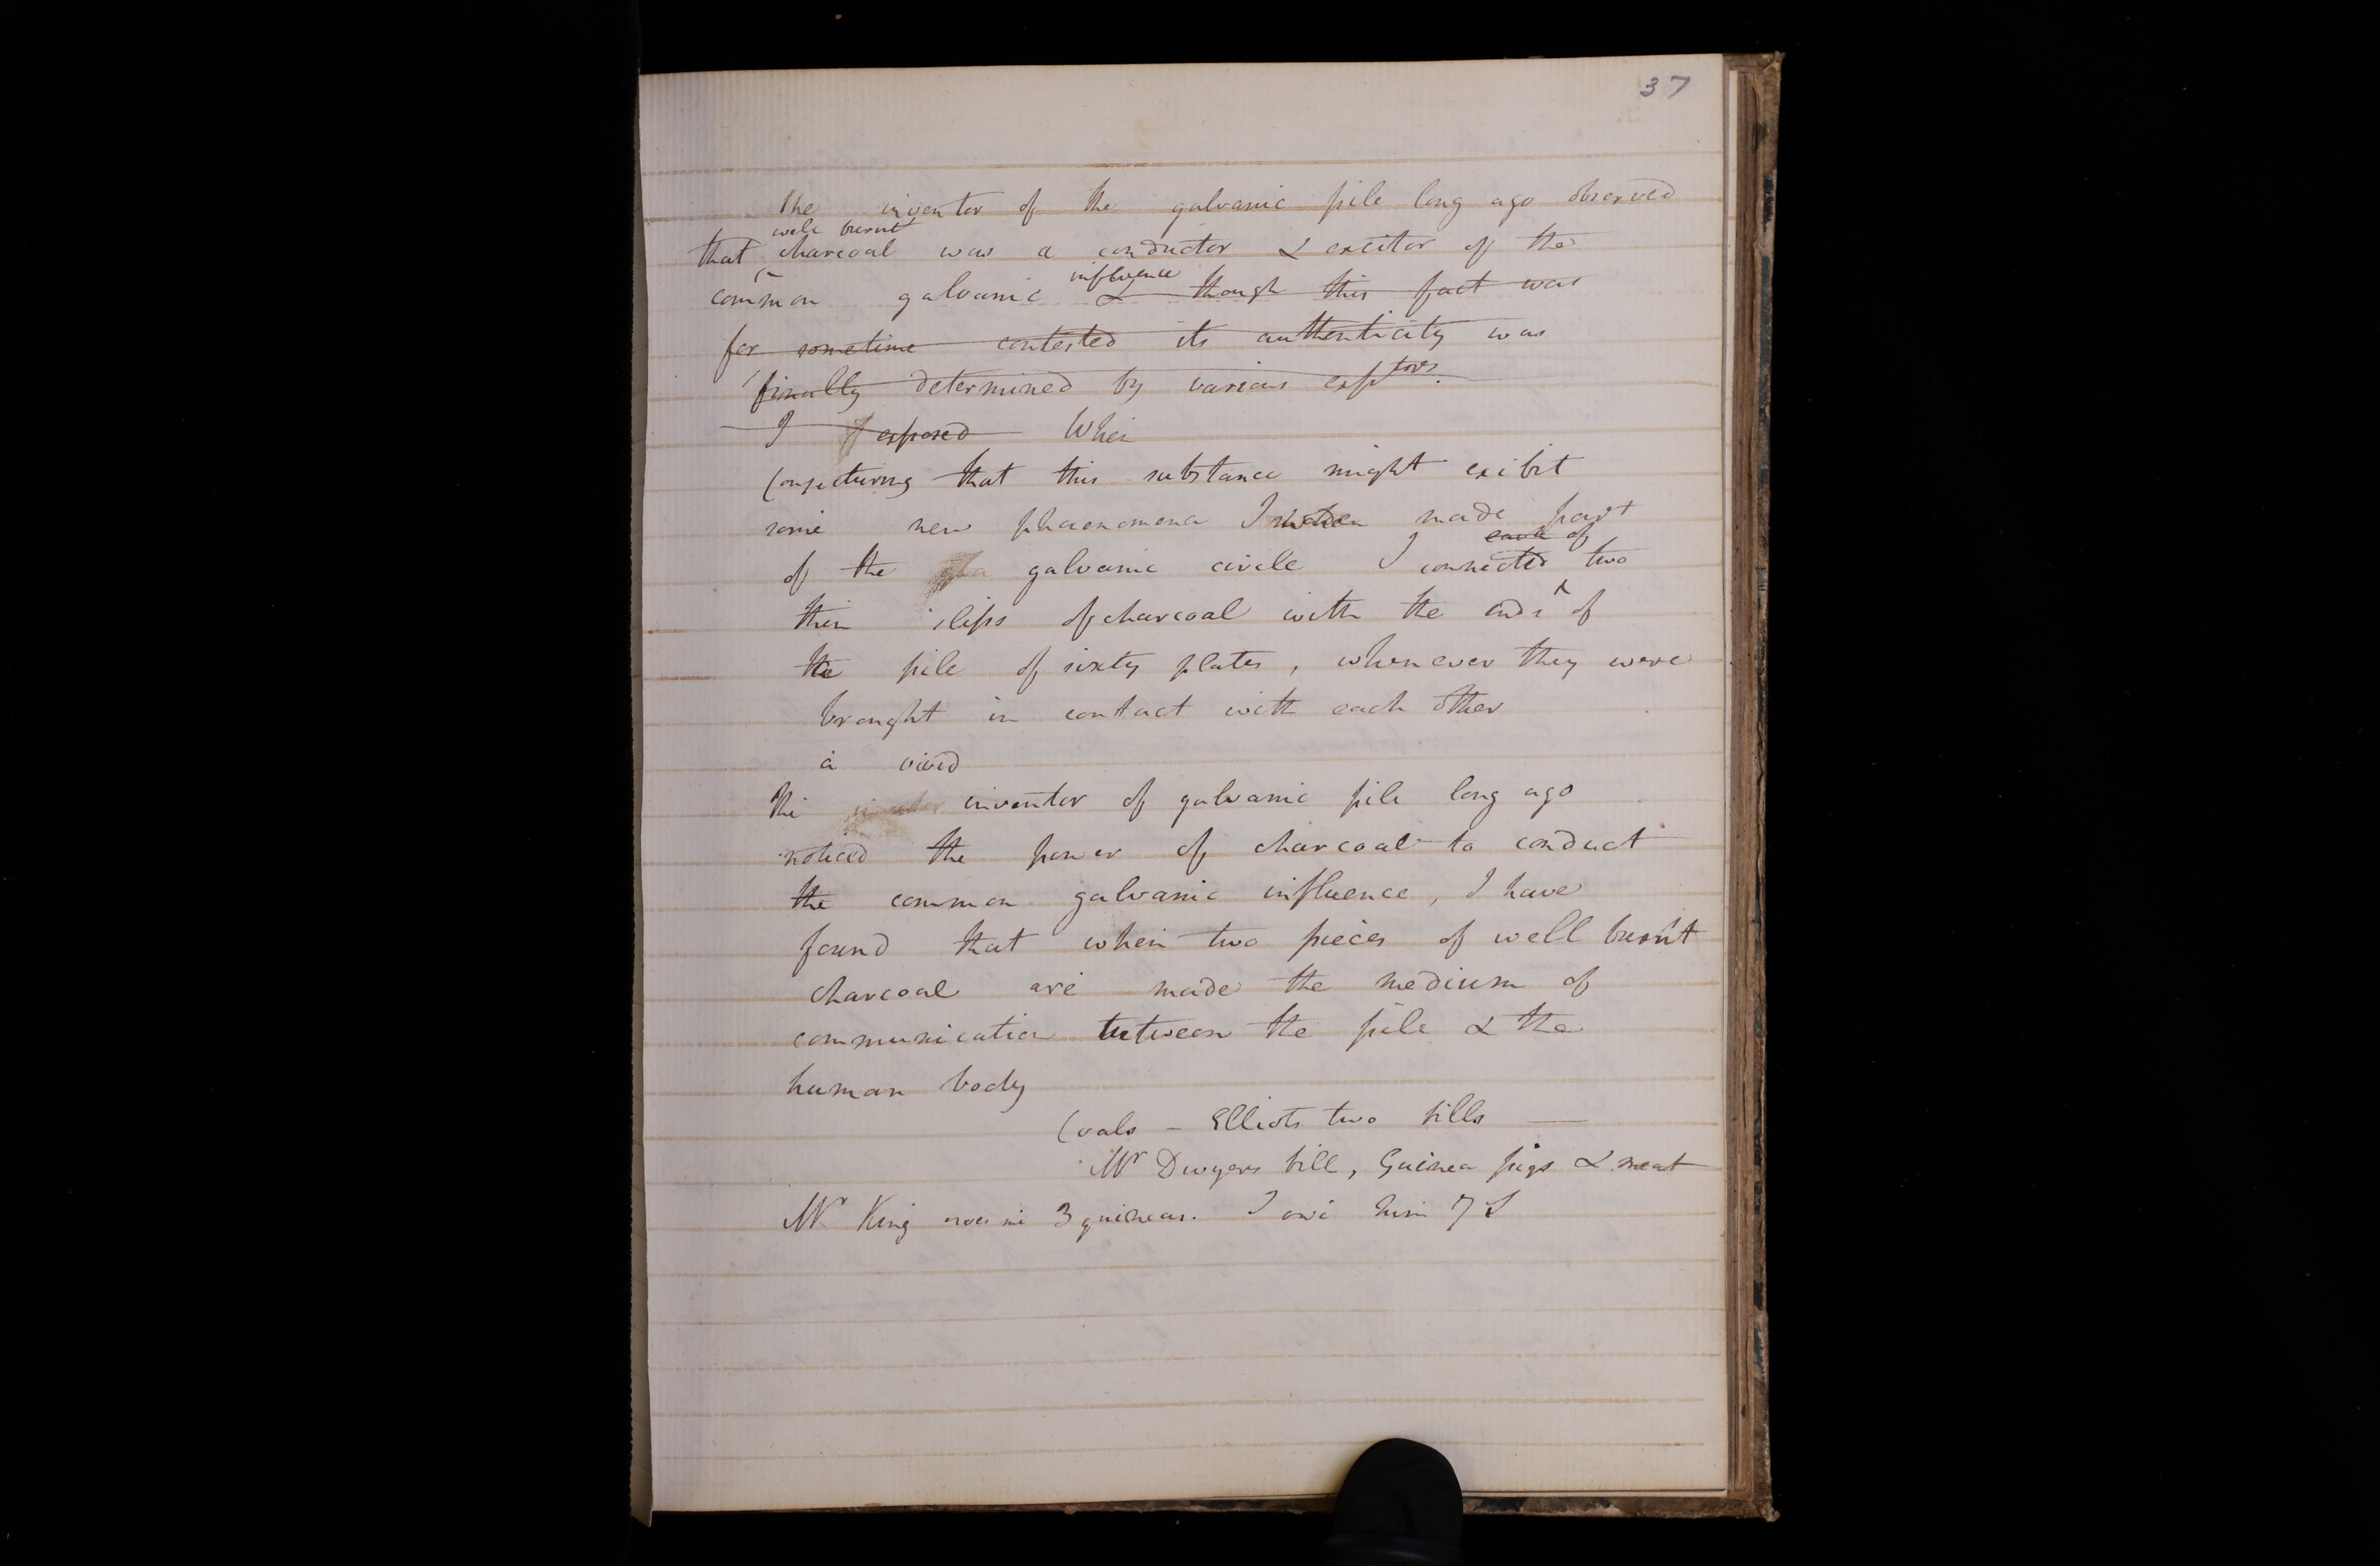 37
The inventor of the galvanic pile long ago observed
well burnt
that charcoal was a conductor & excitor of the
influence
common galvanic & though this fact was
for sometime contested its authenticity was
finally determined by various exptors.
I exposed When
Conjecturing that this substance might exibit
some new phaenomena I made part
each of
of the galvanic circle I connected two
thin slips of charcoal with the ends of
the pile of sixty plates, whenever they were
brought in contact with each other
a vivid
The inventor of galvanic pile long ago
noticed the power of charcoal to conduct
the common galvanic influence, I have
found that when two pieces of well burnt
charcoal are made the medium of
communication between the pile & the
human body
Coals - Elliots two bills —
Mr Dwyers bill, Guinea pigs & meat
Mr King owes me 3 guineas. I owe him 7 S